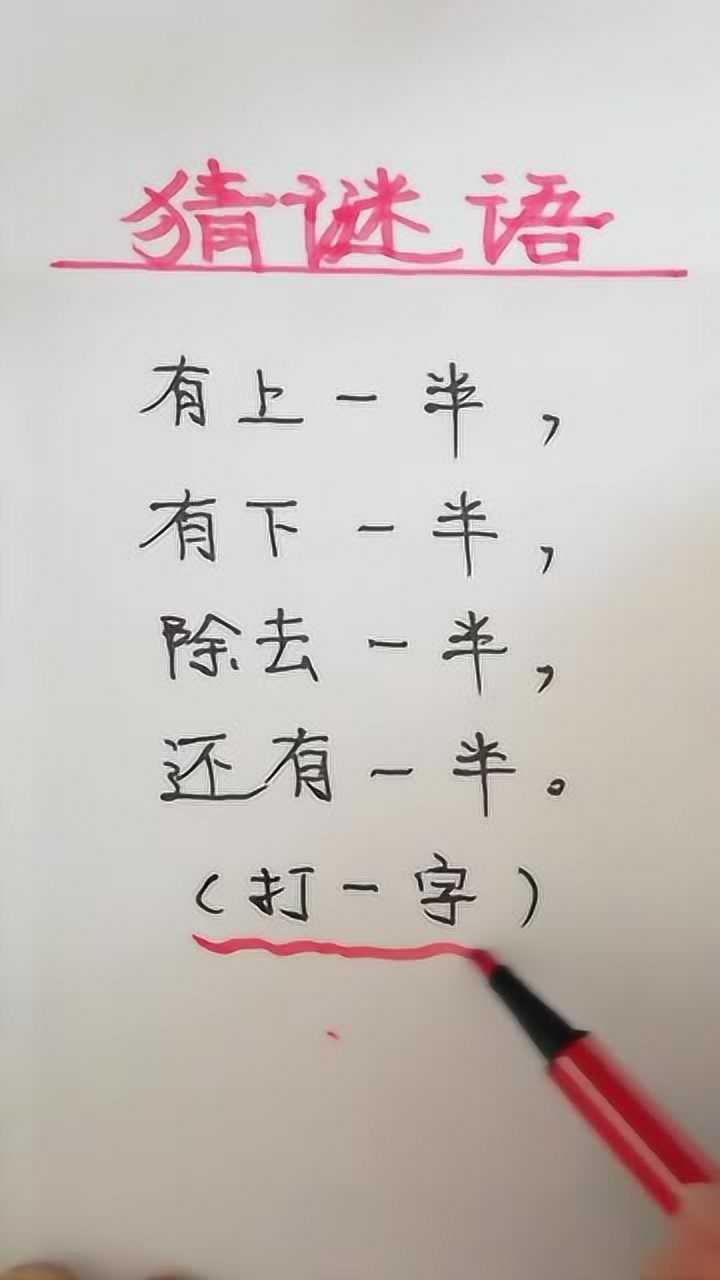 猜谜语
有上一半，
有下一半，
除去一半，
还有一半。
（打一字）